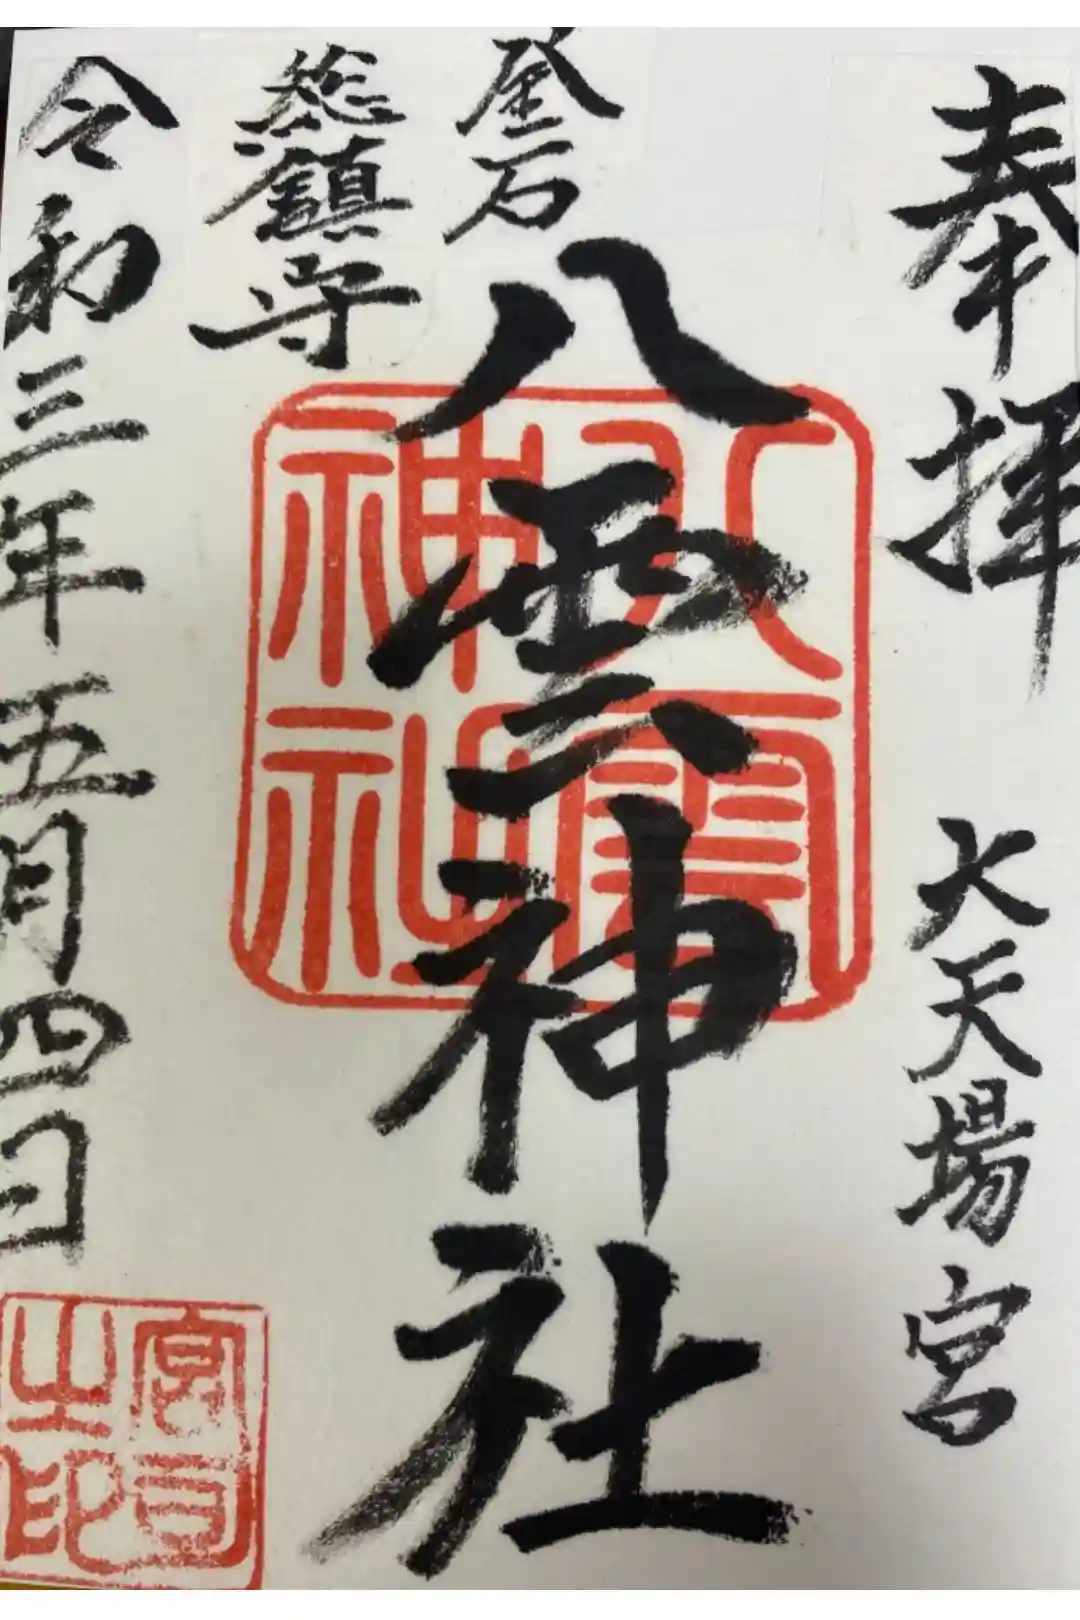 奉拝
大天場宮
釜石
総鎮守
八雲神社
八雲
神社
令和三年五月四日
宮司
之印